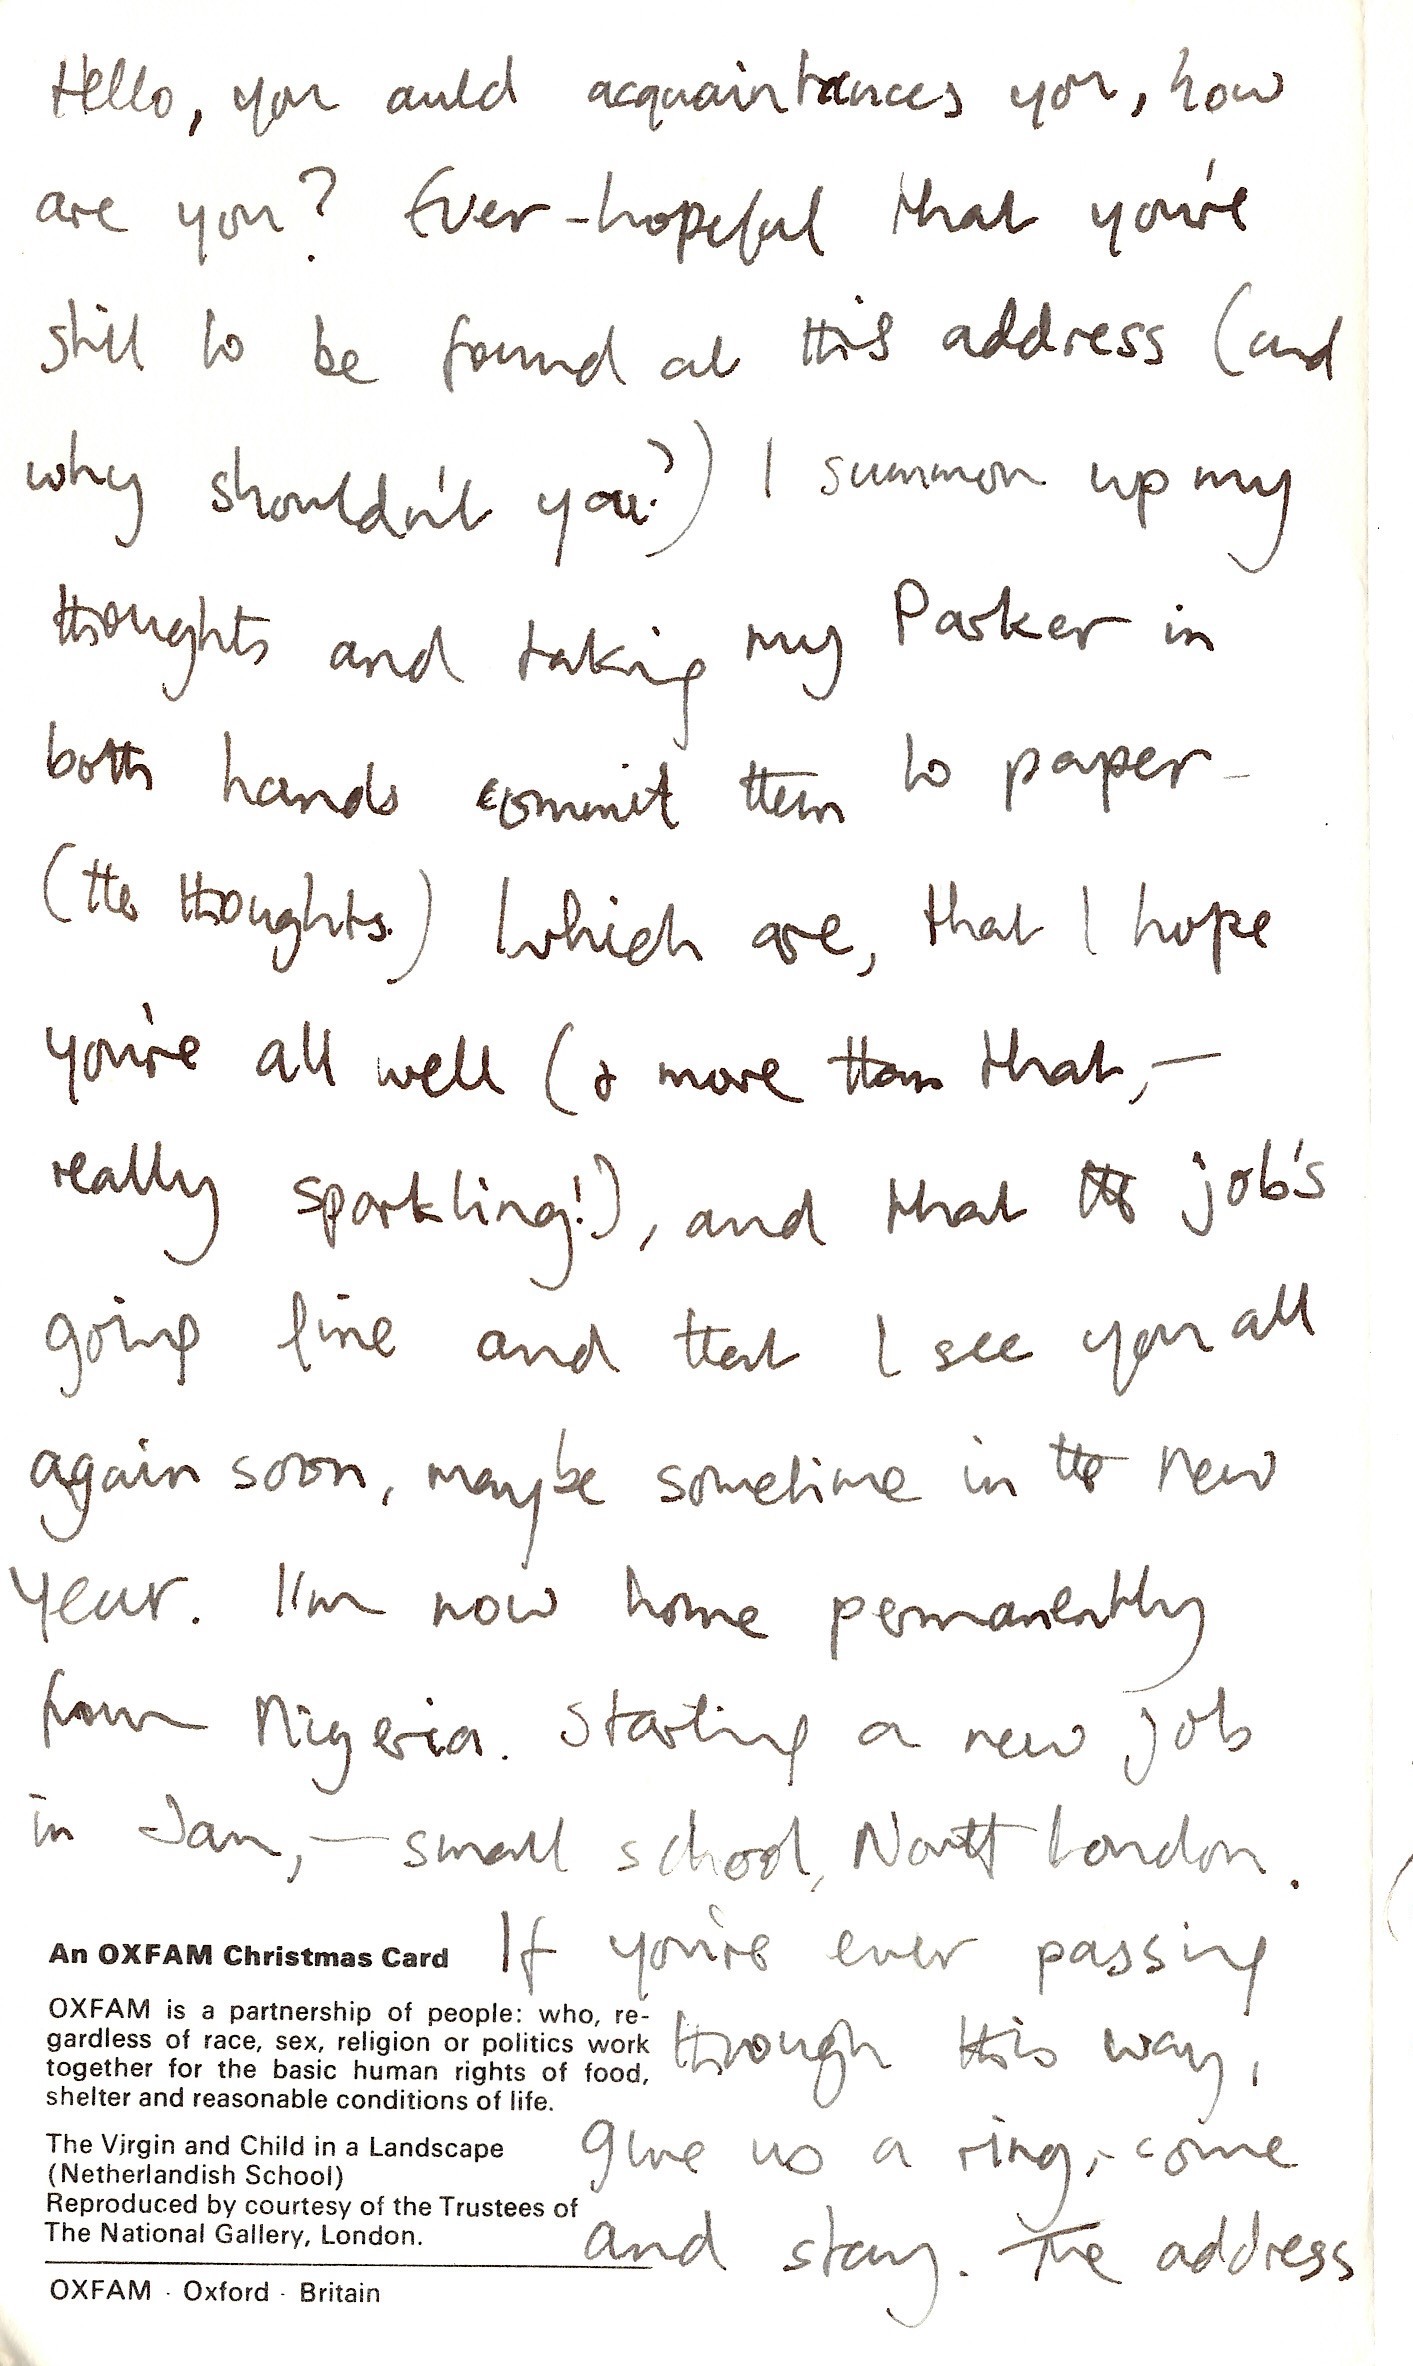 Hello, you auld acquaintances you, how
are you? Ever-hopeful that you're
still to be found at this address (and
why shouldn't you?) I summon up my
thoughts and taking my Parker in
both hands commit them to paper -
(the thoughts.) Which are, that I hope
you're all well (& more than that, -
really sparkling!), and that the job's
going fine and that I see you all
again soon, maybe sometime in the new
year. I'm now home permanently
from Nigeria. Starting a new job
in Jan, - small school, North London.
If you're ever passing
through this way,
give us a ring, - come
and stay. The address
An OXFAM Christmas Card
OXFAM is a partnership of people: who, re-
gardless of race, sex, religion or politics work
together for the basic human rights of food,
shelter and reasonable conditions of life.
The Virgin and Child in a Landscape
(Netherlandish School)
Reproduced by courtesy of the Trustees of
The National Gallery, London.
OXFAM · Oxford · Britain